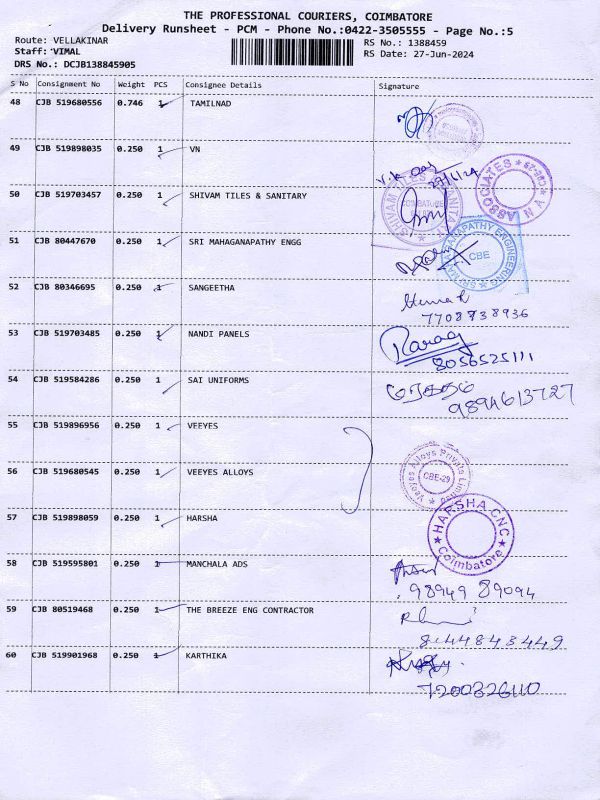 THE PROFESSIONAL COURIERS, COIMBATORE
Delivery Runsheet - PCM - Phone No.:0422-3505555 - Page No.:5
Route: VELLAKINAR
RS No.: 1388459
Staff: VIMAL
RS Date: 27-Jun-2024
DRS No.: DCJB138845905
S No Consignment No Weight PCS Consignee Details Signature
48 CJB 519680556 0.746 1 TAMILNAD
49 CJB 519898035 0.250 1 VN
27/6/24
V N ASSOCIATES
50 CJB 519703457 0.250 1 SHIVAM TILES & SANITARY
SHIVAM TILES
COIMBATORE
51 CJB 80447670 0.250 1 SRI MAHAGANAPATHY ENGG
SRI MAHAGANAPATHY ENGINEERING
CBE
52 CJB 80346695 0.250 1 SANGEETHA
7708738936
53 CJB 519703485 0.250 1 NANDI PANELS
8056525111
54 CJB 519584286 0.250 1 SAI UNIFORMS
9894613727
55 CJB 519896956 0.250 1 VEEYES
56 CJB 519680545 0.250 1 VEEYES ALLOYS
Veeyes Alloys Private Limited
CBE-29
57 CJB 519898059 0.250 1 HARSHA
HARSHA CNC
Coimbatore
58 CJB 519595801 0.250 1 MANCHALA ADS
98949 89094
59 CJB 80519468 0.250 1 THE BREEZE ENG CONTRACTOR
8144843449
60 CJB 519901968 0.250 1 KARTHIKA
7200326110